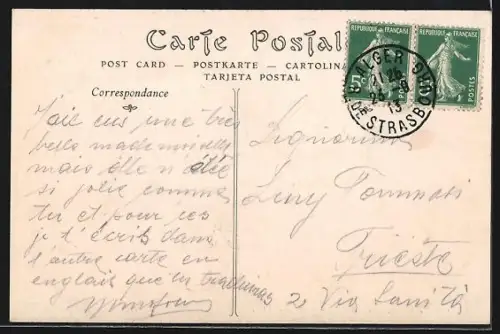 Carte Postale
POST CARD — POSTKARTE — CARTOLINA
TARJETA POSTAL
Correspondance
REPUBLIQUE FRANÇAISE
REPUBLIQUE FRANÇAISE
ALGER
R. DE STRASBOURG
13
J'ai eus une très
belle mademoiselle
mais elle n'étée
si jolie comme
tu et pour ces
je t'écris dans
l'autre carte en
englais que tu traduiras
Signorina
Lucy Tommasi
Trieste
2 Via Sanità